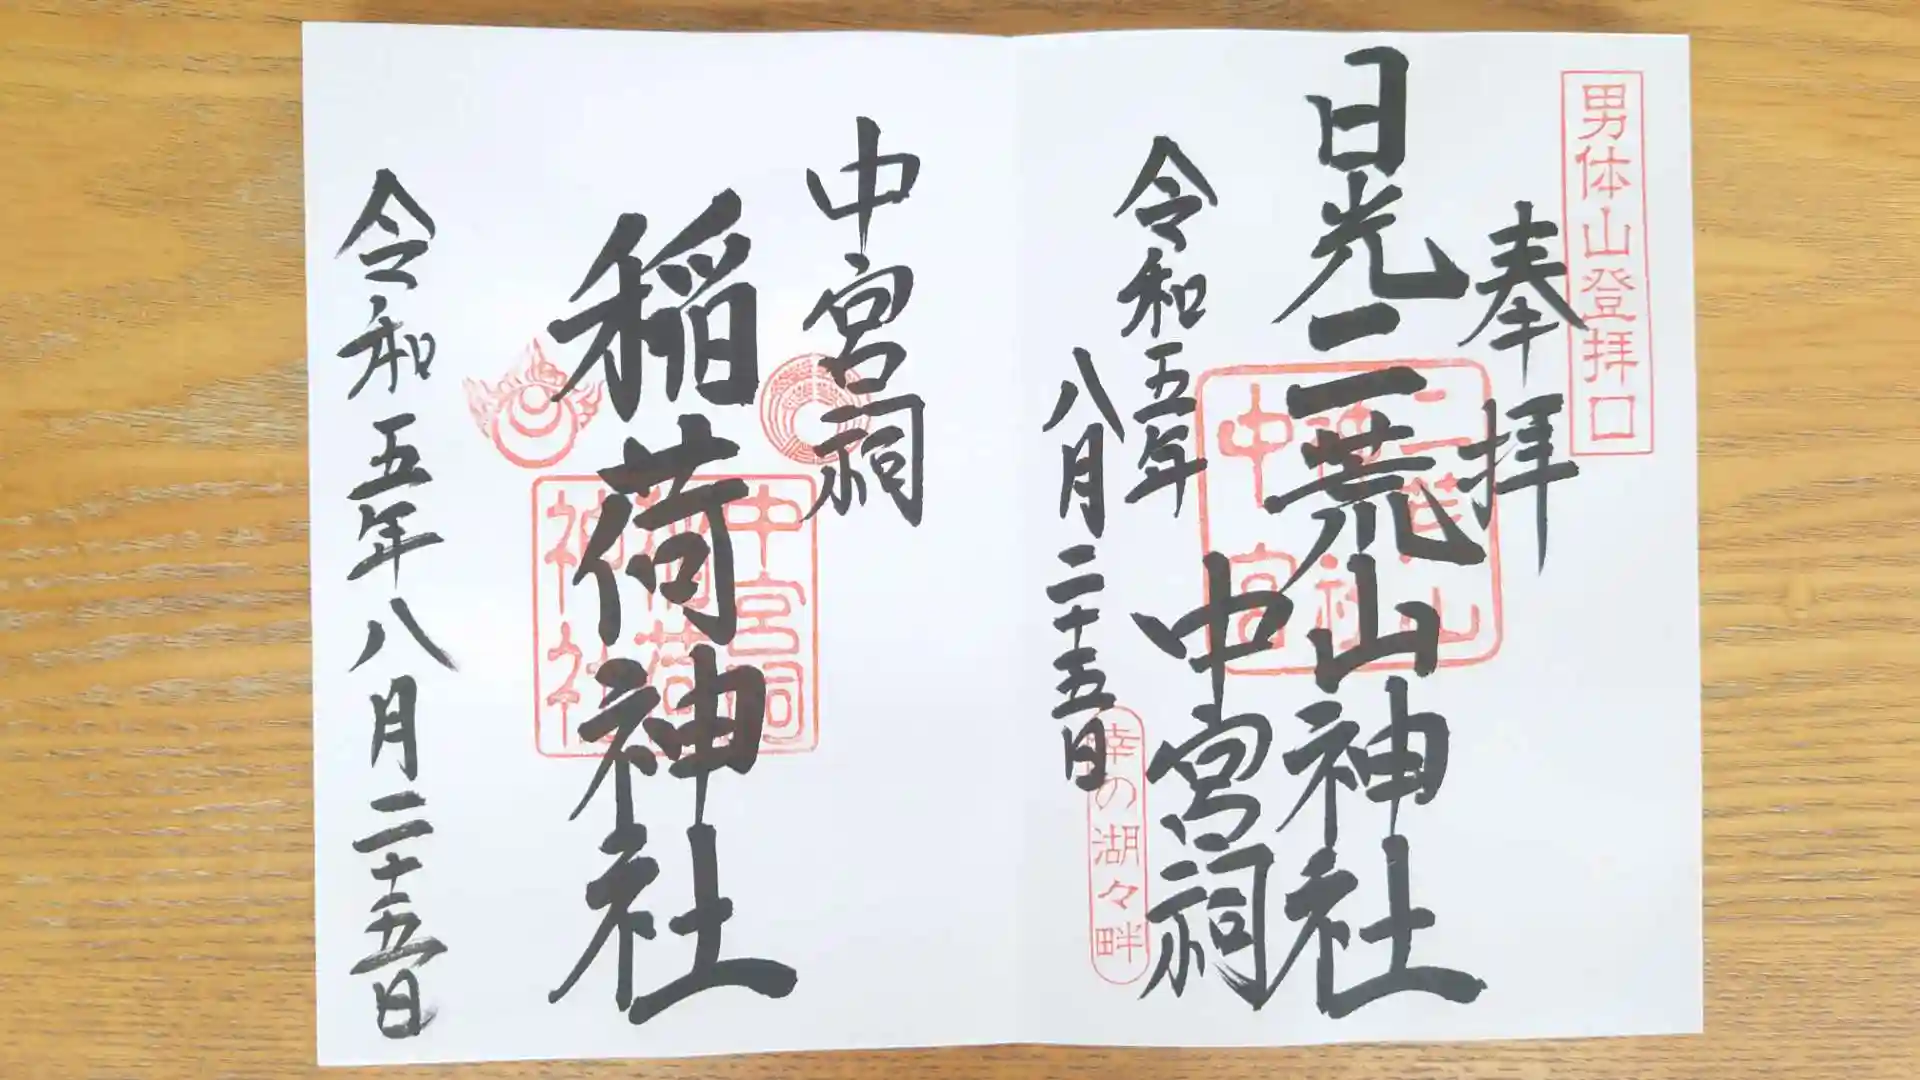 男体山登拝口
奉拝
日光二荒山神社
中宮祠
令和五年
八月二十五日
二荒山
神社
中宮
幸の湖々畔
中宮祠
稲荷神社
令和五年八月二十五日
中宮祠
稲荷
神社